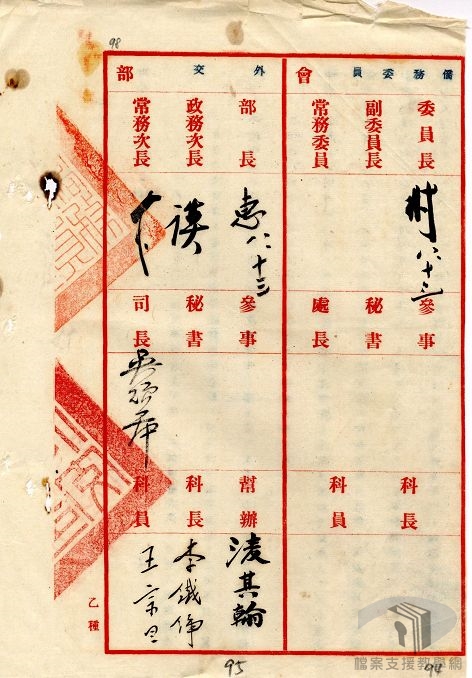 98
僑務委員會
委員長
副委員長
常務委員
八、十三
參事
秘書
處長
科長
科員
外交部
部長
政務次長
常務次長
惠 八、十三
參事
秘書
司長
幫辦
科長
科員
凌其翰
李鐵錚
乙種
95
94
檔案支援教學網